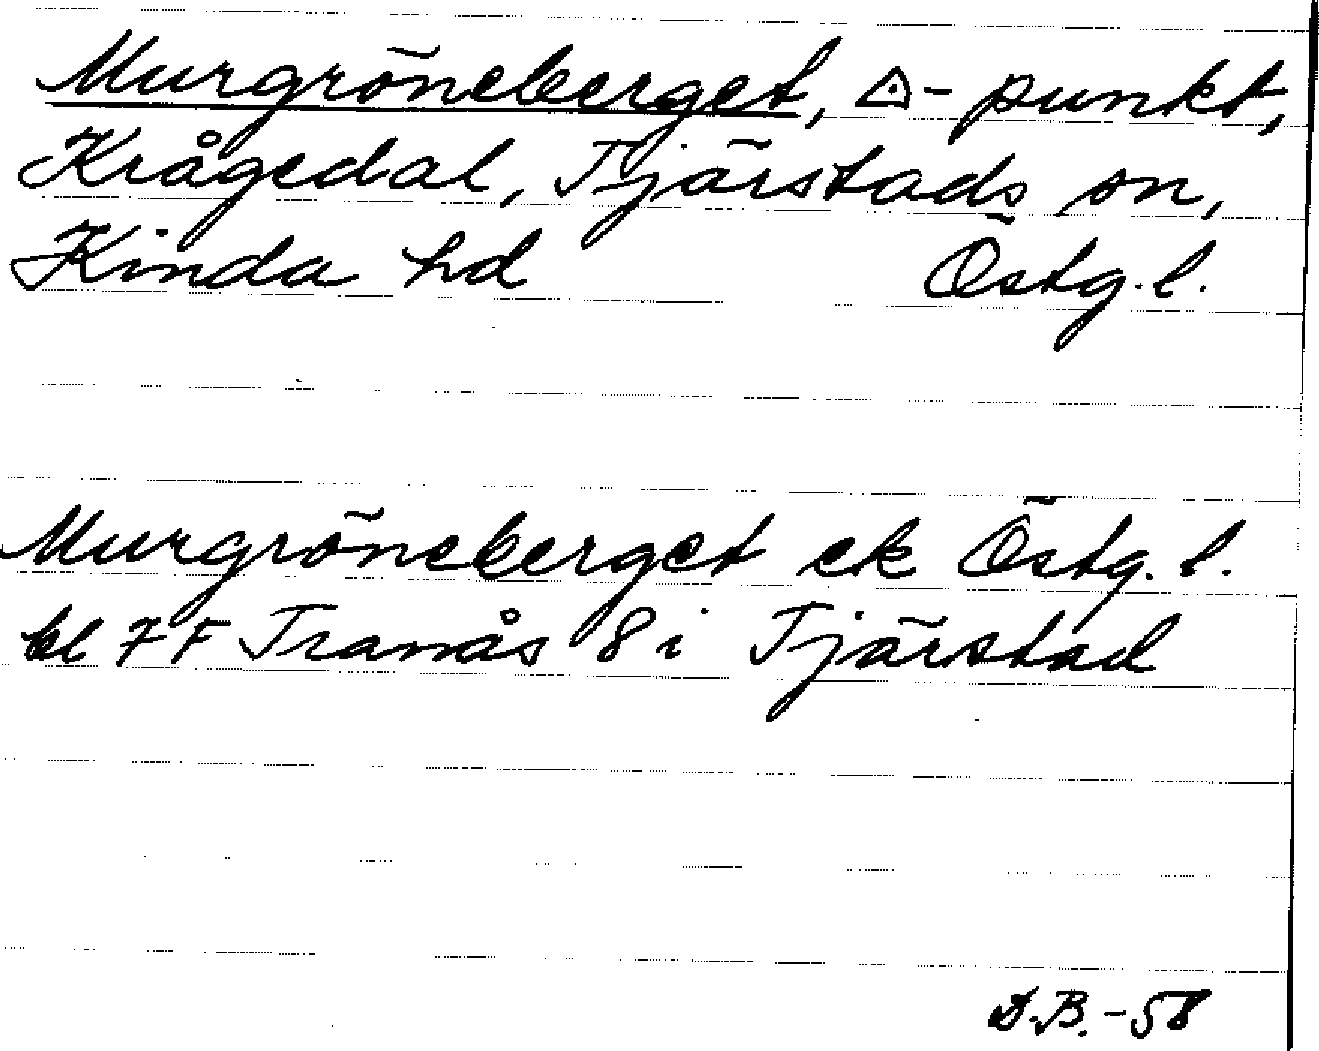 Murgröneberget, △-punkt,
Krågedal, Tjärstads sn,
Kinda hd Östg.l.
Murgröneberget ek Östg.l.
bl 7F Tranås 8 i Tjärstad
D.B.-58